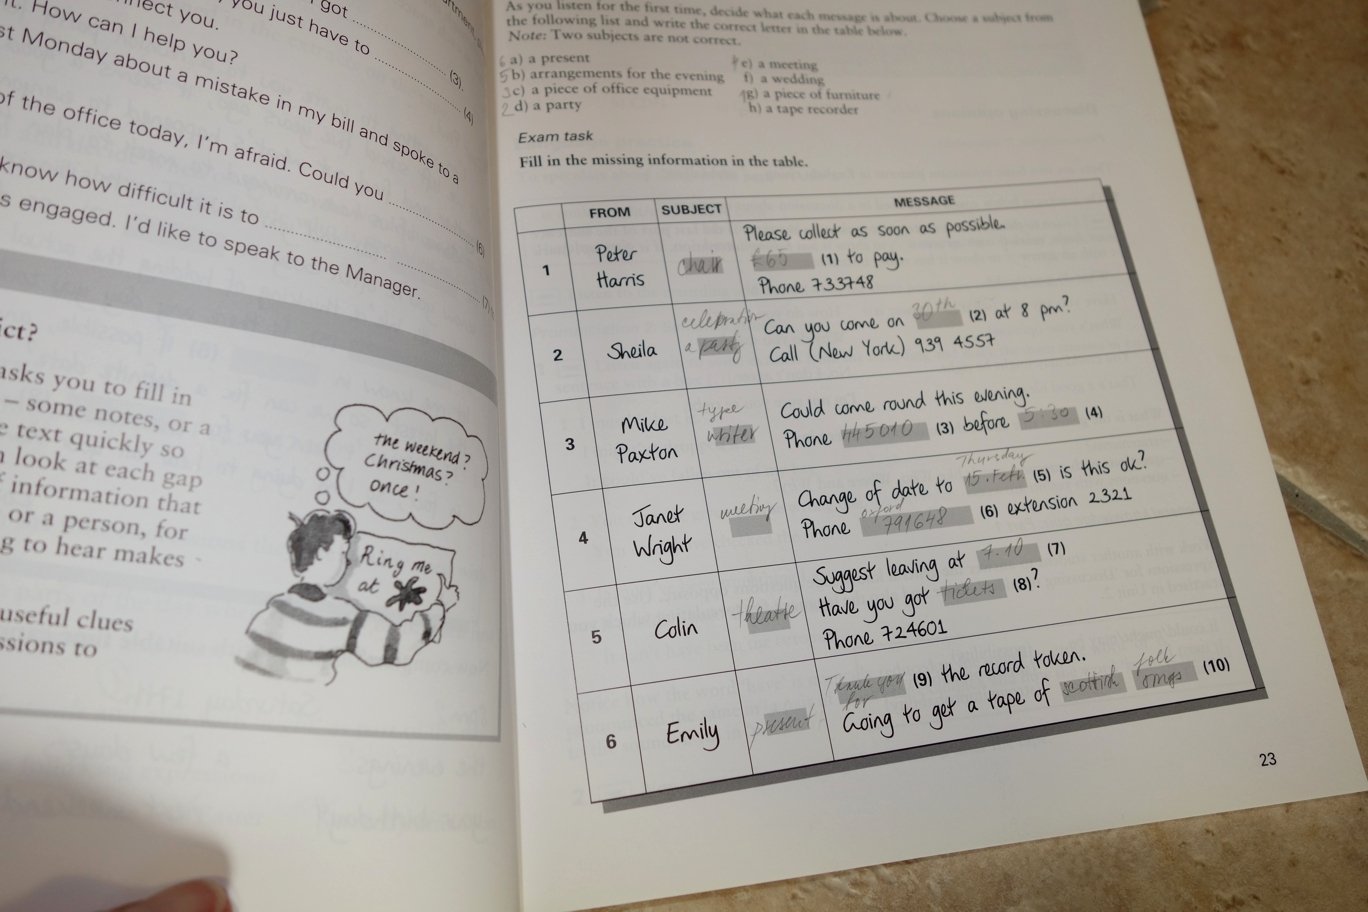 got
you just have to
(3).
nnect you.
it. How can I help you?
(4)
st Monday about a mistake in my bill and spoke to a
of the office today, I'm afraid. Could you
know how difficult it is to
(6)
s engaged. I'd like to speak to the Manager.
ict?
asks you to fill in
– some notes, or a
e text quickly so
look at each gap
information that
or a person, for
g to hear makes
useful clues
ssions to
the weekend?
Christmas?
once!
Ring me
at
As you listen for the first time, decide what each message is about. Choose a subject from
the following list and write the correct letter in the table below.
Note: Two subjects are not correct.
6 a) a present
5 b) arrangements for the evening
3 c) a piece of office equipment
2 d) a party
e) a meeting
f) a wedding
g) a piece of furniture
h) a tape recorder
Exam task
Fill in the missing information in the table.
FROM SUBJECT MESSAGE
1 Peter Harris chair
Please collect as soon as possible.
£65 (1) to pay.
Phone 733748
2 Sheila celebration a party
Can you come on 30th (2) at 8 pm?
Call (New York) 939 4557
3 Mike Paxton type writer
Could come round this evening.
Phone 445010 (3) before 5:30 (4)
4 Janet Wright meeting
Thursday
Change of date to 15. Feb (5) is this ok?
oxford
Phone 791648 (6) extension 2321
5 Colin theatre
Suggest leaving at 7.10 (7)
Have you got tickets (8)?
Phone 724601
6 Emily present
Thank you for (9) the record token.
Going to get a tape of scottish folk songs (10)
23